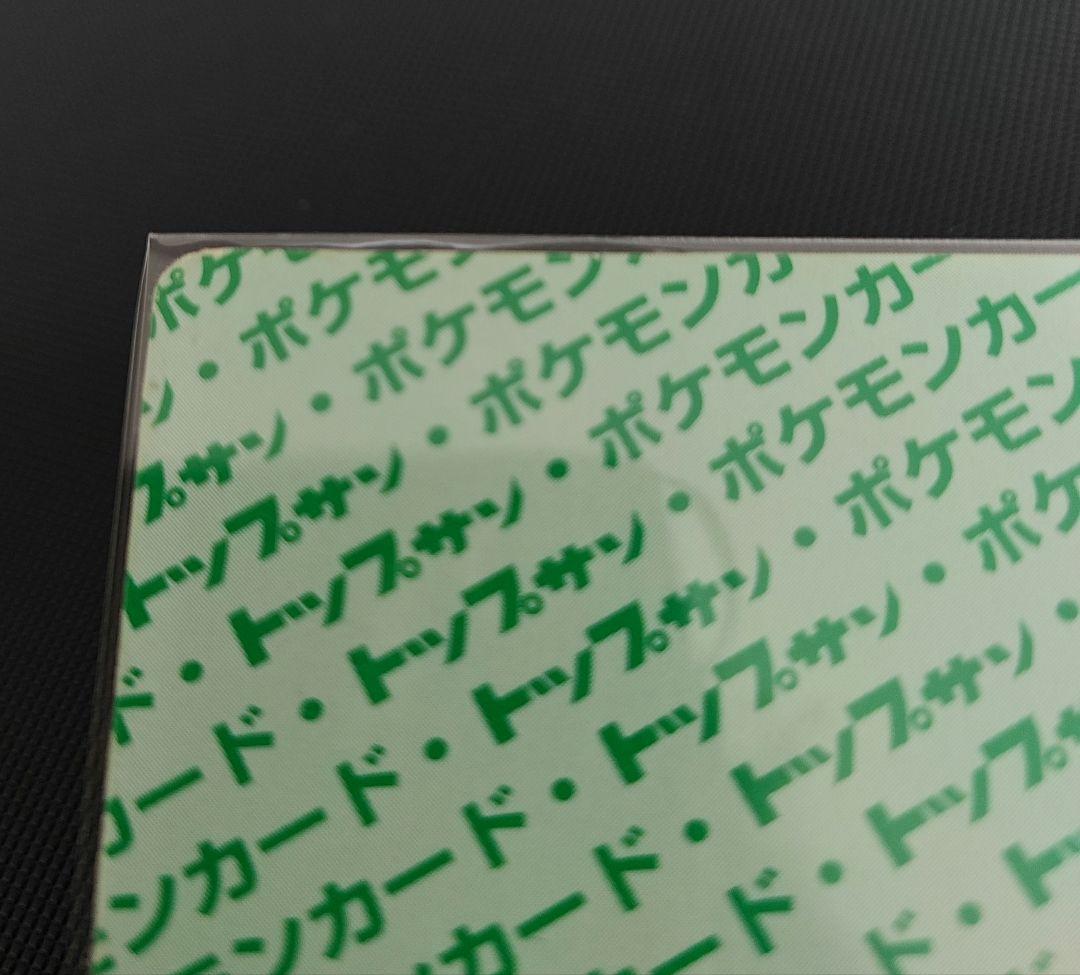 ポケ
ン・ポケモ
プサン・ポケモン
トップサン・ポケモンカ
ド・トップサン・ポケモンカー
カード・トップサン・ポケモンカー
ンカード・トップサン・ポケモン
モンカード・トップサン・ポケ
カード・トップサン・
ード・トップ
ド・ト